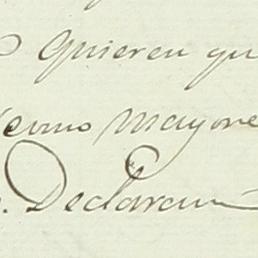 Quieren qu
ecimo Mayore
. Declaran